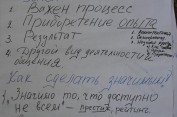 1. Важен процесс
2. Приобретение опыта
3. Результат
4. Другой вид деятельности
общения
Как сделать значимым?
1. "Значимо то, что доступно
не всем" – престиж, рейтинг